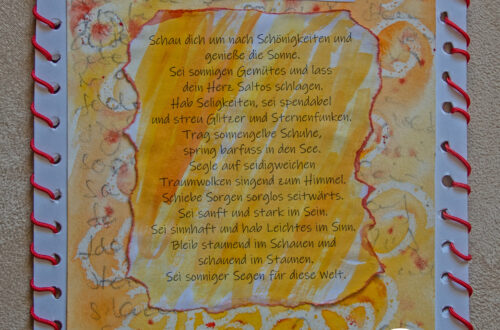 Schau dich um nach Schönigkeiten und
genieße die Sonne.
Sei sonnigen Gemütes und lass
dein Herz Saltos schlagen.
Hab Seligkeiten, sei spendabel
und streu Glitzer und Sternenfunken.
Trag sonnengelbe Schuhe,
spring barfuss in den See.
Segle auf seidigweichen
Traumwolken singend zum Himmel.
Schiebe Sorgen sorglos seitwärts.
Sei sanft und stark im Sein.
Sei sinnhaft und hab Leichtes im Sinn.
Bleib staunend im Schauen und
schauend im Staunen.
Sei sonniger Segen für diese Welt.